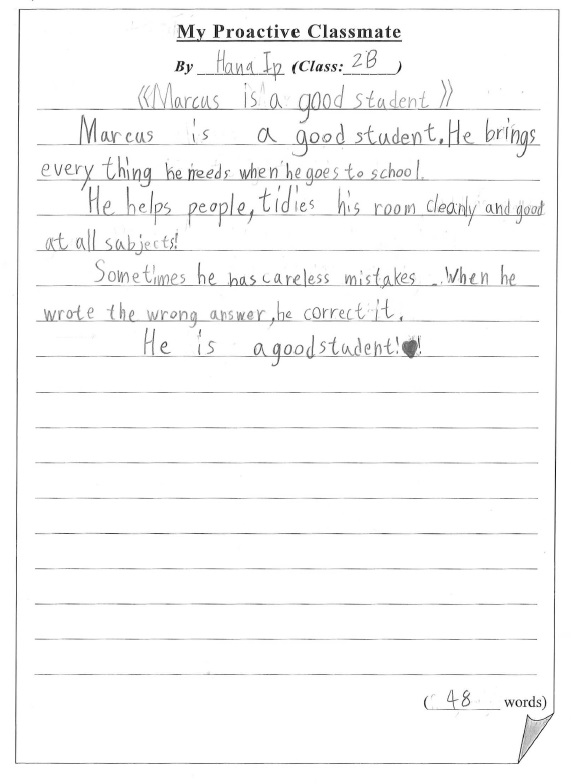 My Proactive Classmate
By Hana Ip (Class: 2B)
《Marcus is a good student》
Marcus is a good student. He brings
every thing he needs when he goes to school.
He helps people, tidies his room cleanly and good
at all subjects!
Sometimes he has careless mistakes. When he
wrote the wrong answer, he correct it.
He is a good student!♥!
(48 words)